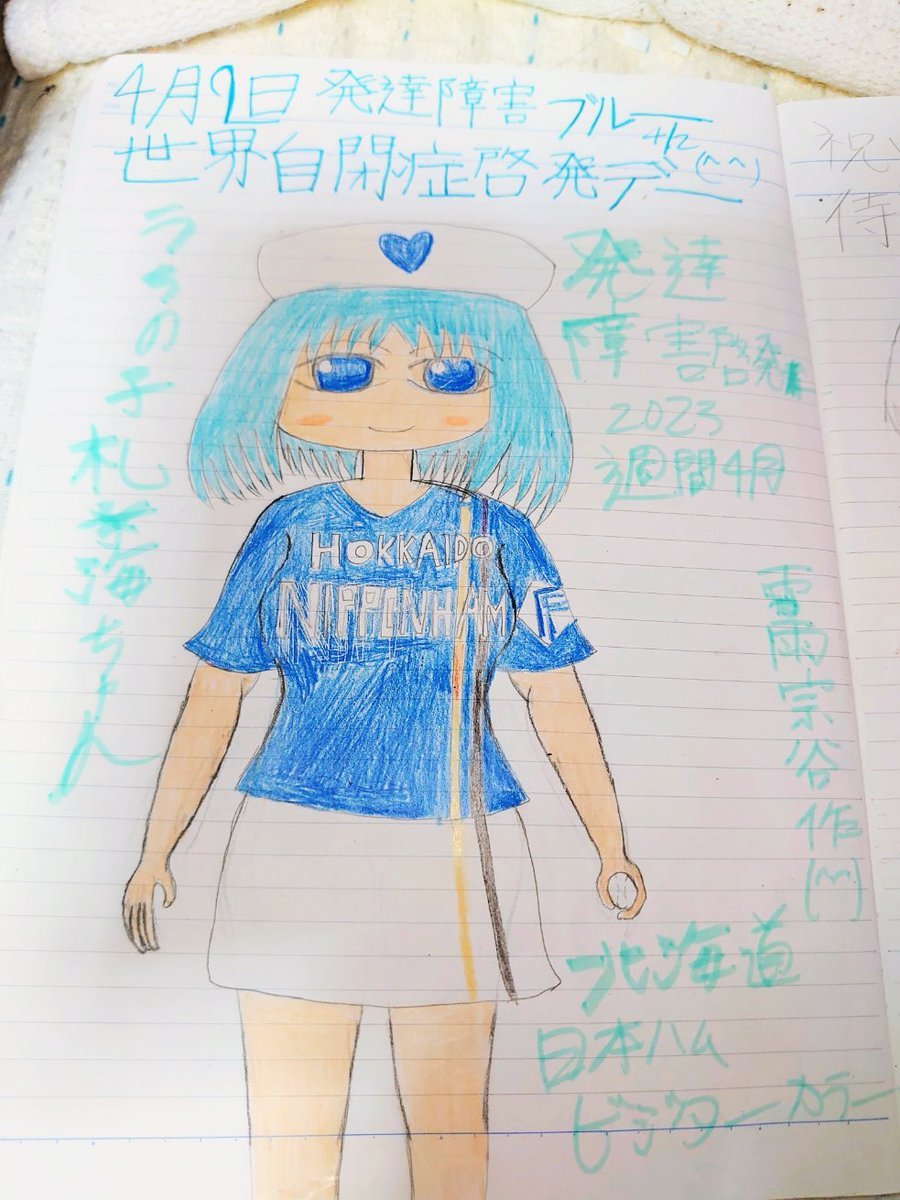 4月9日 発達障害ブルー
世界自閉症啓発デー
4/2
(^^)
うちの子
札幌海ちゃん
発達
障害啓発
2023
週間4月
HOKKAIDO
NIPPENHAM
F
雪雨宗谷作(^^)
北海道
日本ハム
ビジターカラー
祝
侍